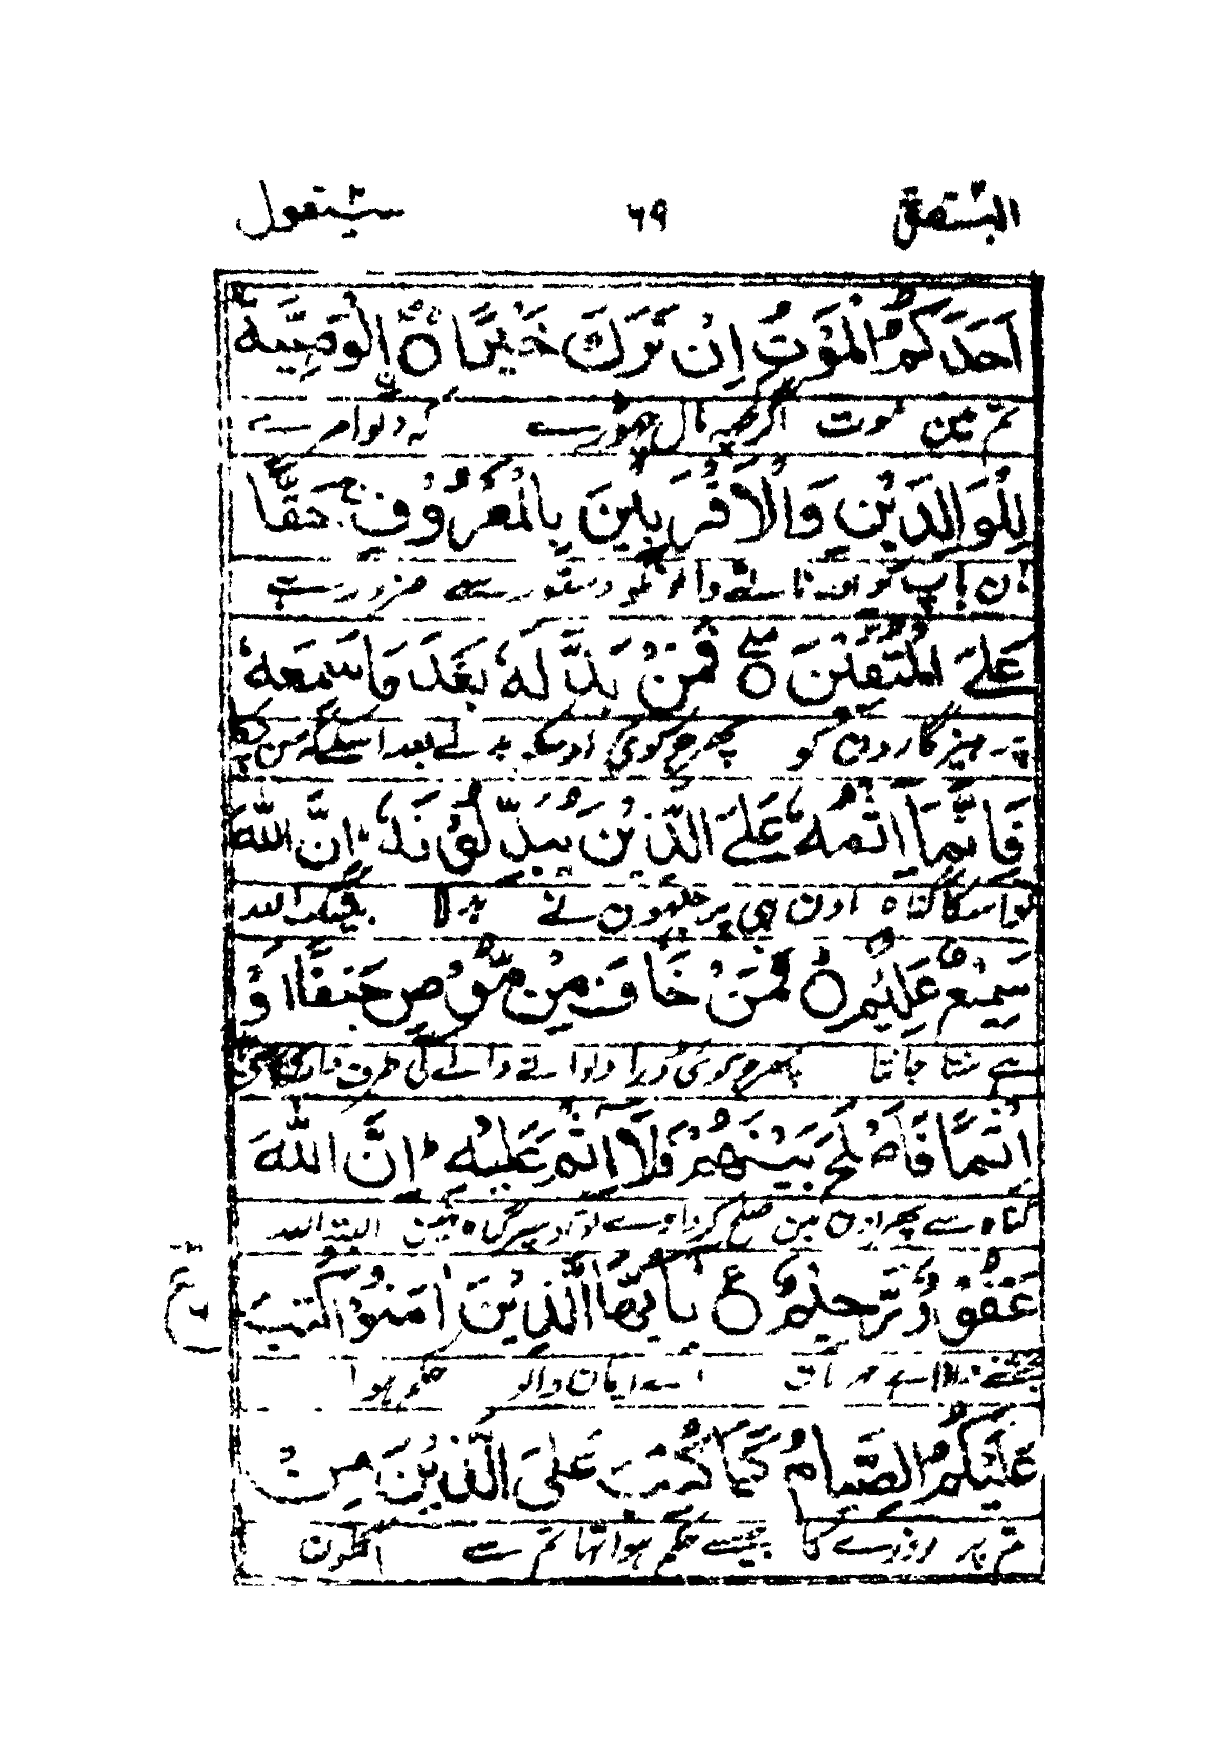 البقرة ٦٩ سیقول
اَحَدَكُمُ الْمَوْتُ اِنْ تَرَكَ خَيْرًا ۨ الْوَصِيَّةُ
تم مین موت اگر کچہ مال چھوڑے کہ دلوا مرے
لِلْوَالِدَيْنِ وَالْاَقْرَبِيْنَ بِالْمَعْرُوْفِ ۚ حَقًّا
مان باپ کو اور ناتے والونکو دستور سے ضرور ہے
عَلَى الْمُتَّقِيْنَ ۝ فَمَنْۢ بَدَّلَهٗ بَعْدَ مَا سَمِعَهٗ
پرہیزگارون کو پھر جو کوئی اوسکو بدلے بعد اسکے کہ سن چکا
فَاِنَّمَاۤ اِثْمُهٗ عَلَى الَّذِيْنَ يُبَدِّلُوْنَهٗ ؕ اِنَّ اللّٰهَ
تو اسکا گناہ اون ہی پر جنہون نے بدلا بیشک اللہ
سَمِيْعٌ عَلِيْمٌ ۝ فَمَنْ خَافَ مِنْ مُّوْصٍ جَنَفًا اَوْ
ہے سنتا جانتا پھر جو کوئی ڈرا دلوانے والے کی طرفداری
اِثْمًا فَاَصْلَحَ بَيْنَهُمْ فَلَاۤ اِثْمَ عَلَيْهِ ؕ اِنَّ اللّٰهَ
گناہ سے پھر اون مین صلح کروا دے تو اوسپر گناہ نہین البتہ اللہ
غَفُوْرٌ رَّحِيْمٌ ۝ يٰۤاَيُّهَا الَّذِيْنَ اٰمَنُوْا كُتِبَ
بخشنے والا ہے مہربان اے ایمان والو حکم ہوا
ع
عَلَيْكُمُ الصِّيَامُ كَمَا كُتِبَ عَلَى الَّذِيْنَ مِنْ
تم پر روزے کا جیسے حکم ہوا تھا تم سے اگلون